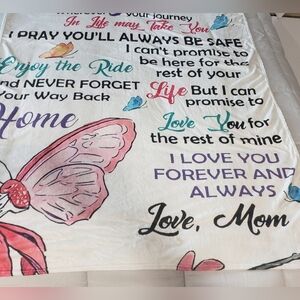 Wherever your journey
In Life may Take You
I PRAY YOU'LL ALWAYS BE SAFE
Enjoy the Ride
and NEVER FORGET
Your Way Back
Home
I can't promise to
be here for the
rest of your
Life But I can
promise to
Love You for
the rest of mine
I LOVE YOU
FOREVER AND
ALWAYS
Love, Mom